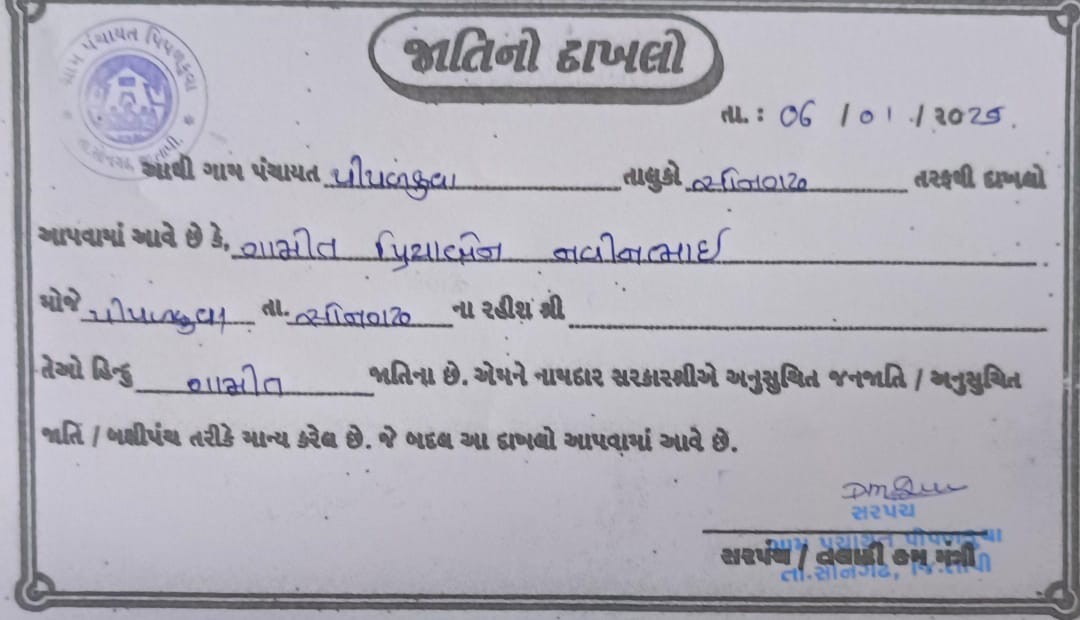 ગ્રામ પંચાયત પિપળકુવા
જાતિનો દાખલો
તા. : 06 / 01 / ૨૦25.
આથી ગામ પંચાયત પીપળકુવા તાલુકો સોનગઢ તરફથી દાખલો
આપવામાં આવે છે કે, ગામીત પ્રિયાબેન નવીનભાઈ
મોજે પીપળકુવા તા. સોનગઢ ના રહીશ શ્રી
તેઓ હિન્દુ ગામીત જાતિના છે. એમને નામદાર સરકારશ્રીએ અનુસુચિત જનજાતિ / અનુસુચિત
જાતિ / બક્ષીપંચ તરીકે માન્ય કરેલ છે. જે બદલ આ દાખલો આપવામાં આવે છે.
સરપંચ
ગ્રામ પંચાયત પીપળકુવા
સરપંચ / તલાટી કમ મંત્રી
તા.સોનગઢ, જિ.તાપી